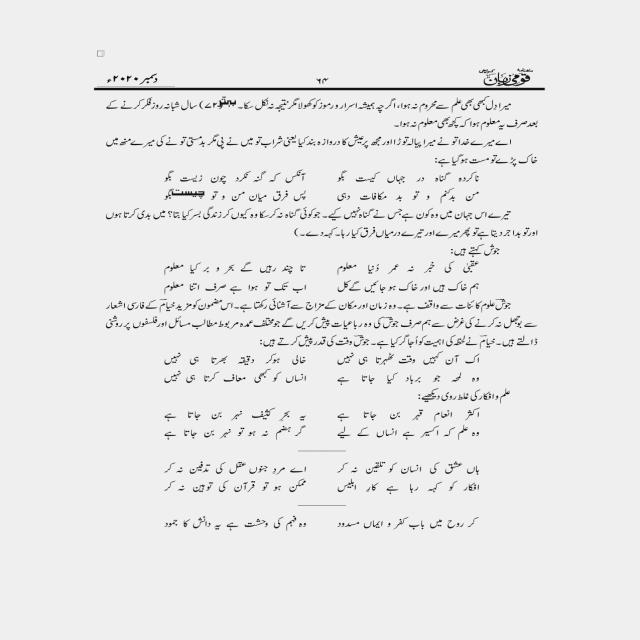 ماہنامہ قومی زبان کراچی ۶۴ دسمبر ۲۰۲۰ء
میرا دل کبھی بھی علم سے محروم نہ ہوا، اگرچہ ہمیشہ اسرار و رموز کو کھولا مگر نتیجہ نہ نکل سکا۔ بہتر(۷۲) سال شبانہ روز فکر کرنے کے
بعد صرف یہ معلوم ہوا کہ کچھ بھی معلوم نہ ہوا۔
اے میرے خدا تو نے میرا پیالہ توڑا اور مجھ پر عیش کا دروازہ بند کیا یعنی شراب تو میں نے پی مگر بدمستی تو نے کی میرے منھ میں
خاک پڑے تو مست ہو گیا ہے:
ناکردہ گناہ در جہاں کیست بگو آنکس کہ گنہ نکرد چون زیست بگو
من بد کنم و تو بد مکافات دہی پس فرق میان من و تو چیست بگو
تیرے اس جہان میں وہ کون ہے جس نے گناہ نہیں کیے۔ جو کوئی گناہ نہ کر سکا وہ کیوں کر زندگی بسر کیا بتا؟ میں بدی کرتا ہوں
اور تو بدا جر دیتا ہے تو پھر میرے اور تیرے درمیاں فرق کیا رہا۔ کہہ دے۔)
جوش کہتے ہیں:
عقبیٰ کی خبر نہ عمر دُنیا معلوم تا چند رہیں گے بحر و بر کیا معلوم
ہم خاک ہیں اور خاک ہو جائیں گے کل اب تک تو ہوا ہے صرف اتنا معلوم
جوشؔ علوم کائنات سے واقف ہے۔ وہ زمان اور مکان کے مزاج سے آشنائی رکھتا ہے۔ اس مضمون کو مزید خیامؔ کے فارسی اشعار
سے بوجھل نہ کرنے کی غرض سے ہم صرف جوشؔ کی وہ رباعیات پیش کریں گے جو مختلف عمدہ مربوط مطالب مسائل اور فلسفوں پر روشنی
ڈالتے ہیں۔ خیامؔ نے لحظہ کی اہمیت کو اُجاگر کیا ہے۔ جوشؔ وقت کی قدر پیش کرتے ہیں:
اک آن کہیں وقت ٹھہرتا ہی نہیں خالی ہوکر دقیقہ بھرتا ہی نہیں
وہ لمحہ جو برباد کیا جاتا ہے انساں کو کبھی معاف کرتا ہی نہیں
علم و افکار کی غلط روی دیکھیے:
اکثر انعام قہر بن جاتا ہے یہ بحرِ کثیف نہر بن جاتا ہے
وہ علم کہ اکسیر ہے انساں کے لیے گر ہضم نہ ہو تو زہر بن جاتا ہے
ہاں عشق کی انسان کو تلقین نہ کر اے مردِ جنوں عقل کی تدفین نہ کر
افکار کو کہہ رہا ہے کارِ ابلیس ممکن ہو تو قرآن کی توہین نہ کر
کر روح میں باب کفر و ایماں مسدود وہ فہم کی وحشت ہے یہ دانش کا جمود